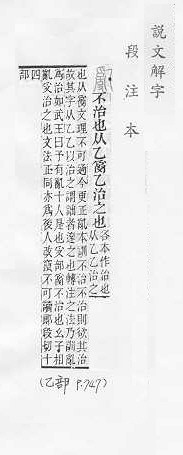 說文解字
段注本
不治也从乙𤔔乙治之也
各本作治也
从乙乙治之
也从𤔔文理不可通今更正亂本訓不治不治則欲其治
故其字从乙乙以治之謂詘者達之也轉注之法乃訓亂
爲治如武王曰予有亂十人是也𠬪部𤔔不治也幺子相
亂𠬪治之也文法正同亦爲後人改竄不可讀郎段切十
四
部
(乙部 P.747)